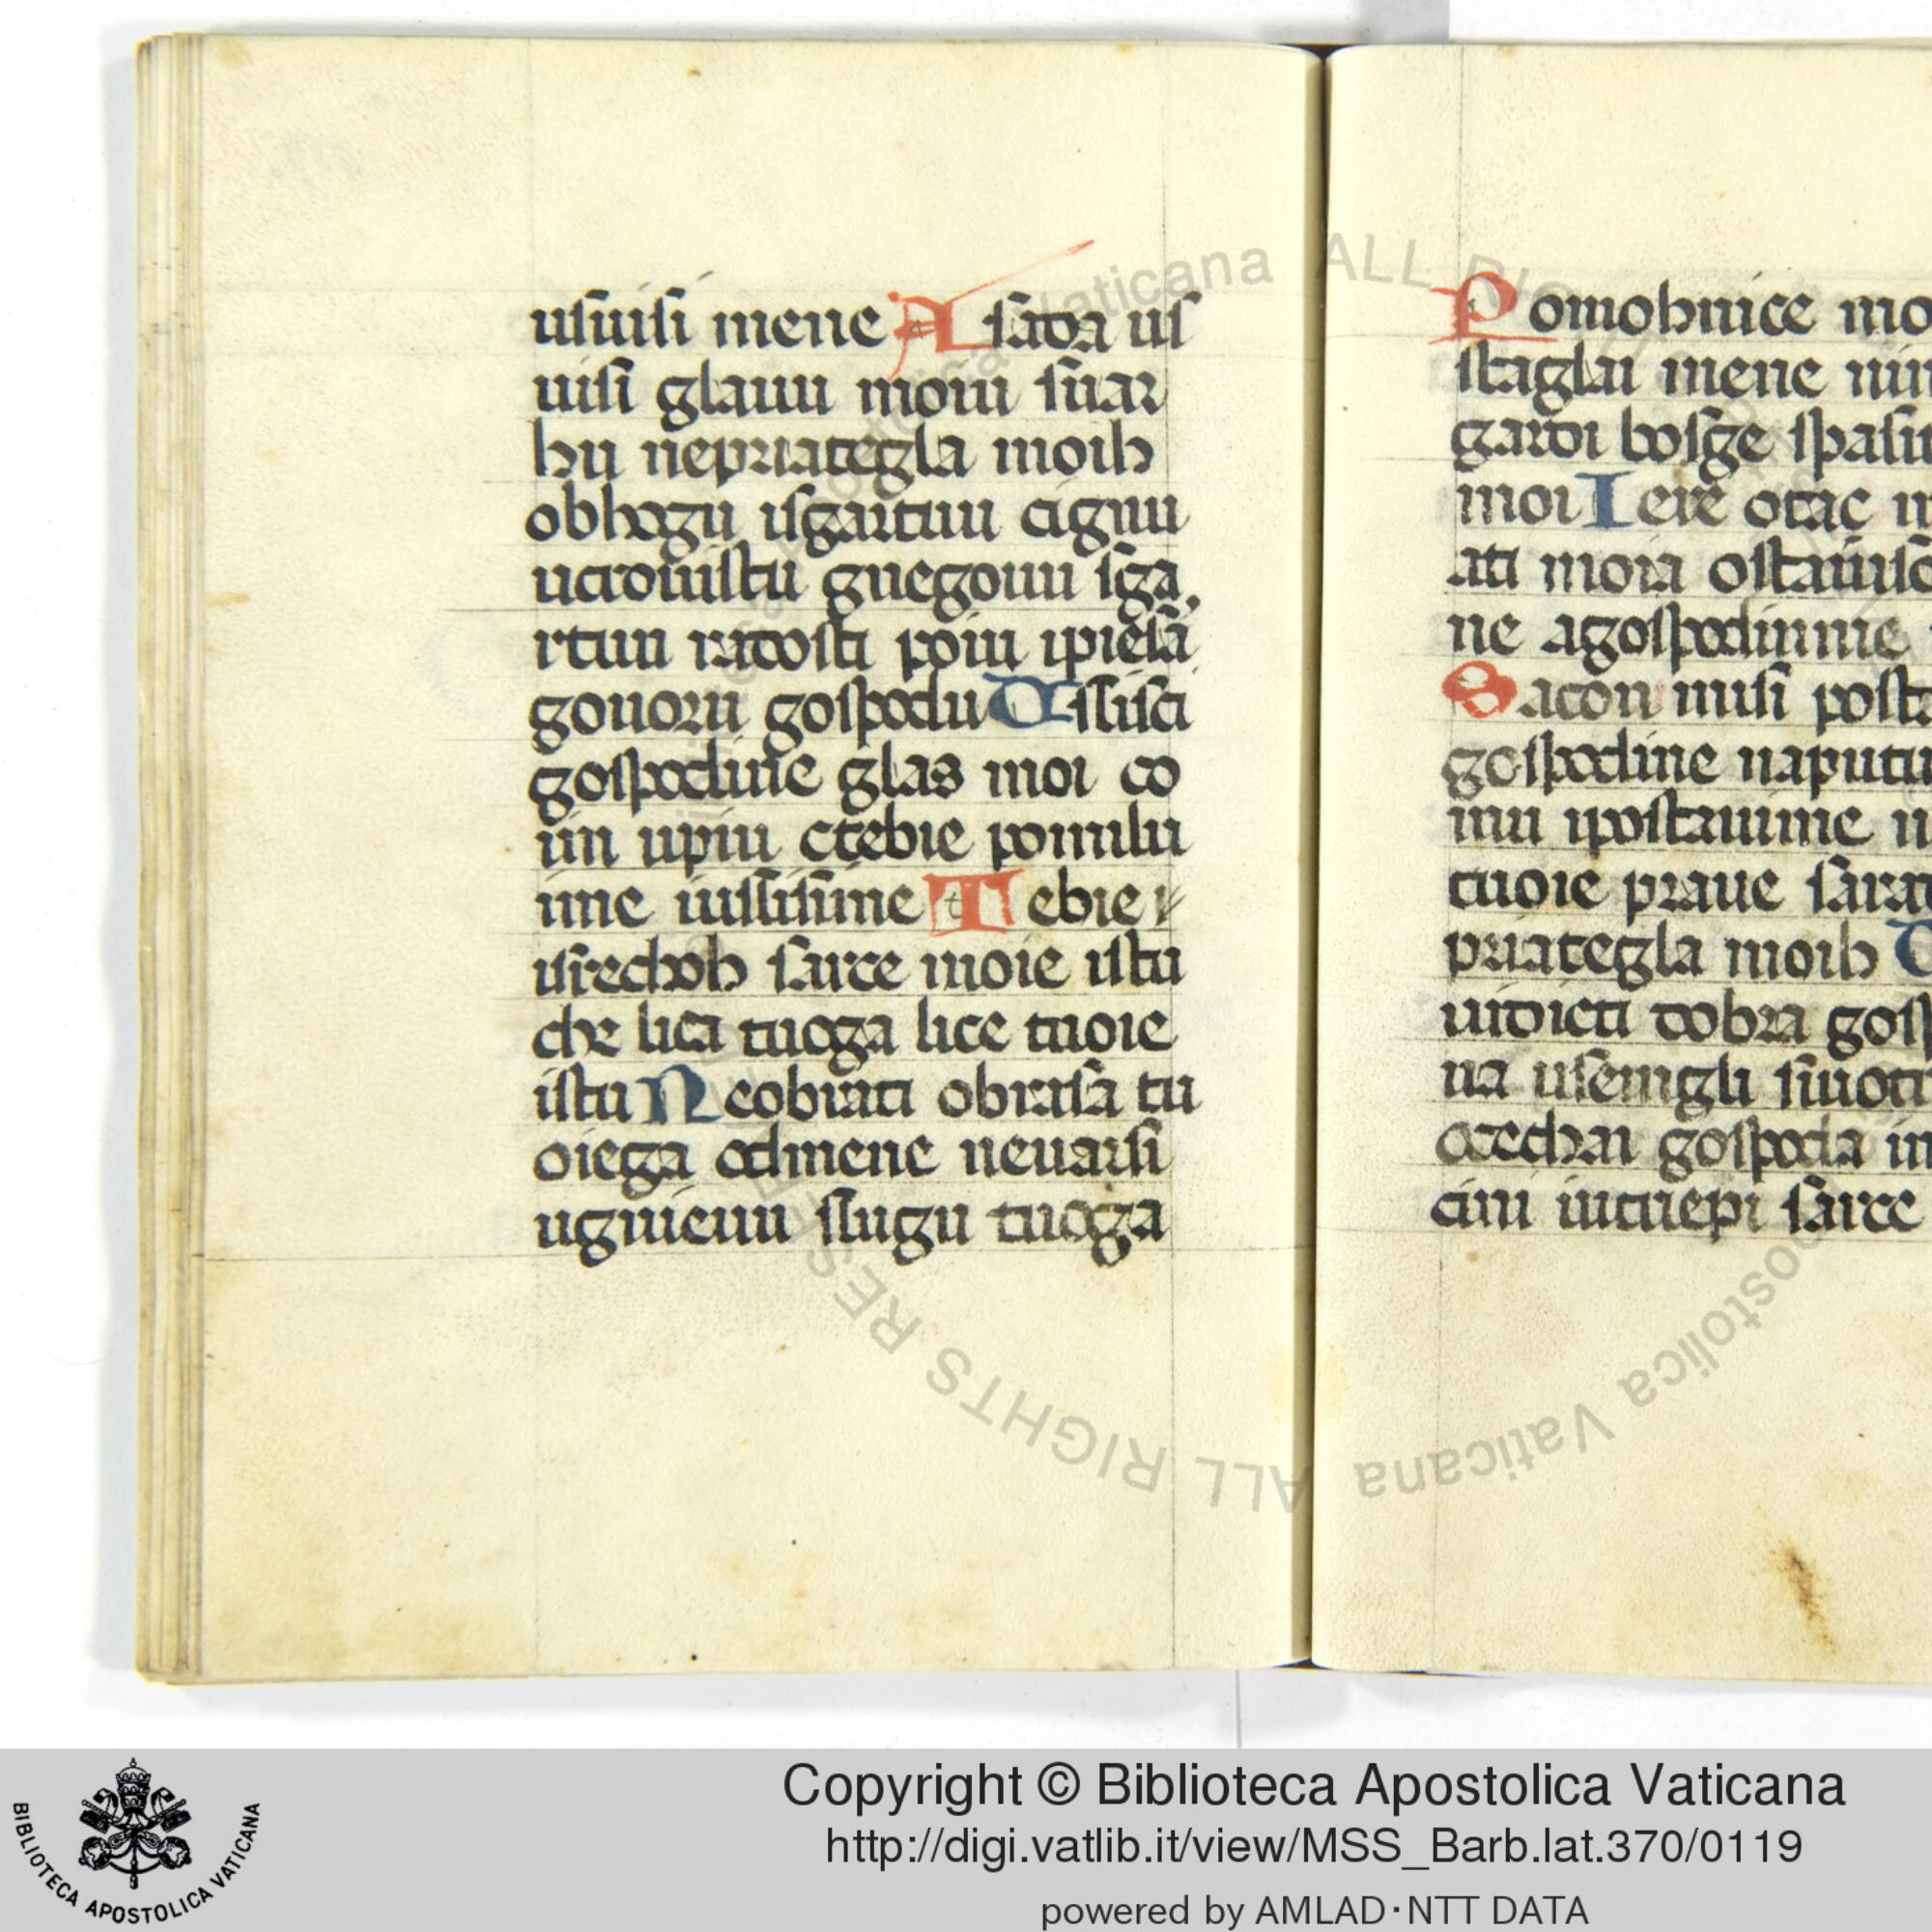 usuisi mene A sada us
uisi glauu moiu suar
hu nepriategla moih
obhogu isgartuu cignu
ucrouistu gnegouu isga
rtuu radosti poiu ipiesa
gouoru gospodu U slisci
gospodine glas moi co
im upiu ctebie pomilu
ime iuslisime T ebie r
usrechoh sarce moie istu
che lica tuoga lice tuoie
istu N eobrati obrasa tu
oiega odmene neuarsi
ugniєuu slugu tuoga
P omohnice mo
staglai mene nin
gardi bosge spasit
moi I ere otac m
ati moia ostauisc
ne agospodinme
S acon nusi posta
gospodine naputu
mu ipostauime n
tuoie praue sarat
priategla moih
uidieti dobra gosp
na usemgli siuoti
ocechai gospoda m
cini iucuiepi sarce
Copyright © Biblioteca Apostolica Vaticana
http://digi.vatlib.it/view/MSS_Barb.lat.370/0119
powered by AMLAD·NTT DATA
BIBLIOTECA APOSTOLICA VATICANA